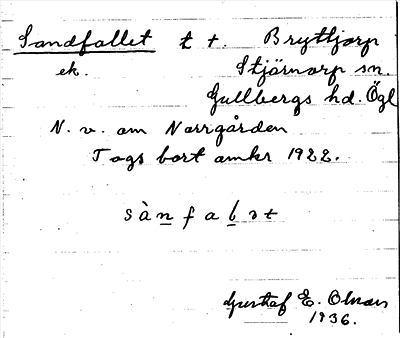 Sandfallet t t. Bryttjorp
ek. Stjärnorp sn.
Gullbergs hd. Ögl
N. v. om Norrgården
Togs bort omkr 1922.
sànfabət
Gustaf E. Olson
1936.